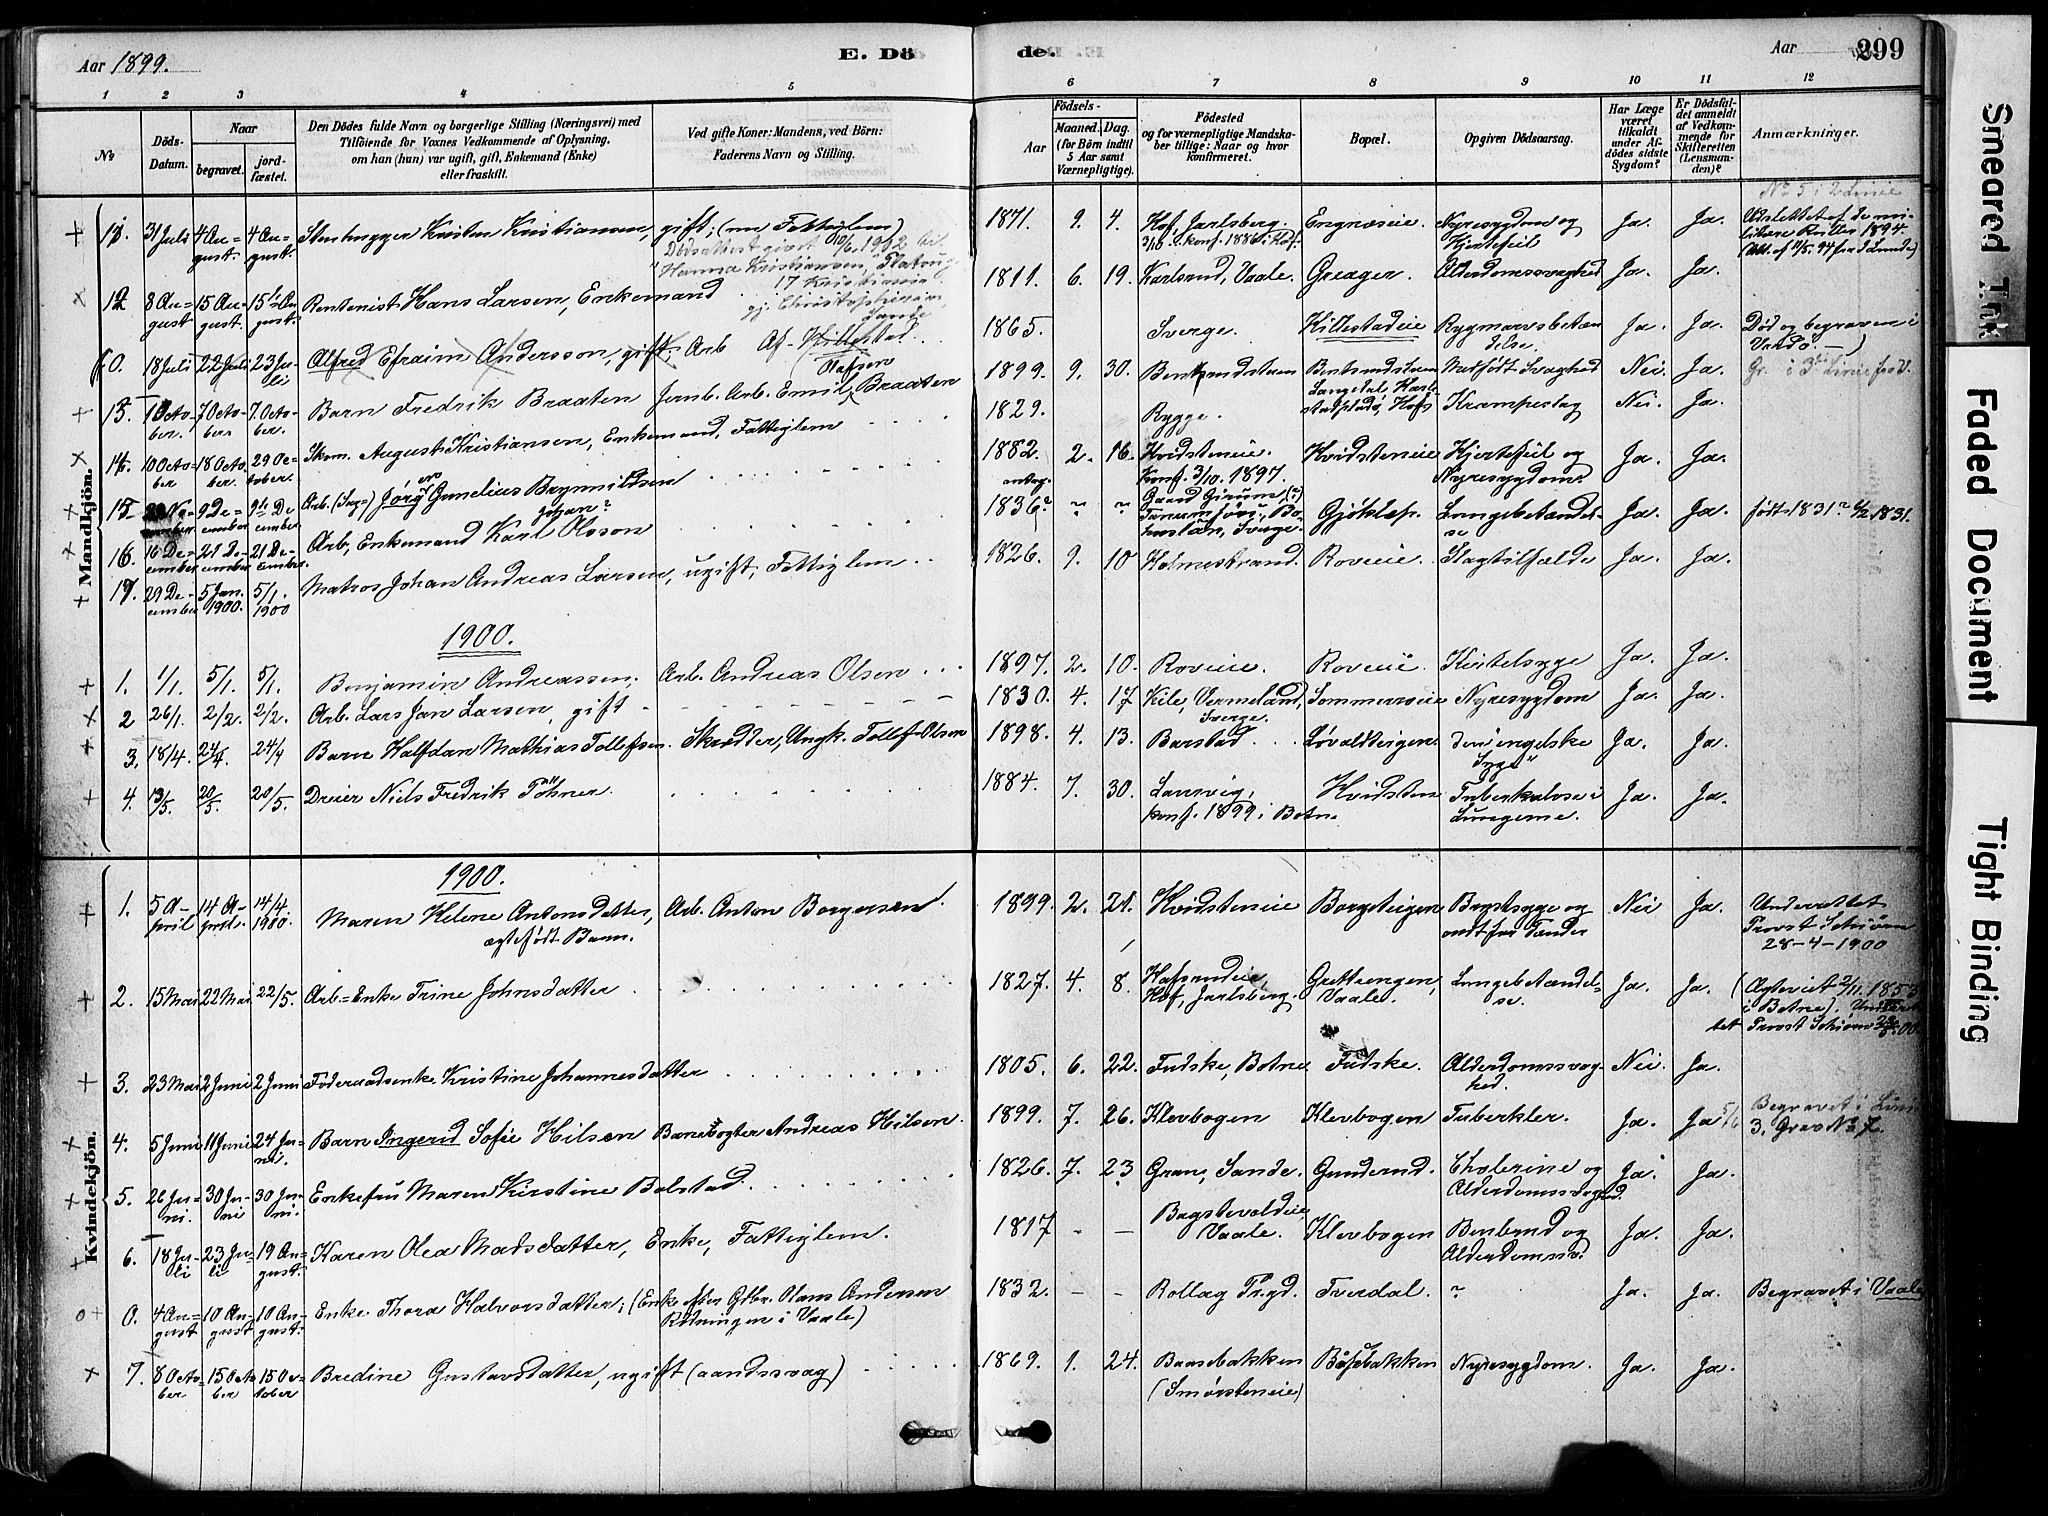 Aar 1899.
E. Dö
de.
Aar
299
1 2 3 4 5 6 7 8 9 10 11 12
No
Döds-Datum.
Naar
begravet.
jord-fæstet.
Den Dödes fulde Navn og borgerlige Stilling (Næringsvei) med
Tilföiende for Voxnes Vedkommende af Oplysning,
om han (hun) var ugift, gift, Enkemand (Enke)
eller fraskilt.
Ved gifte Koner: Mandens, ved Börn:
Faderens Navn og Stilling.
Aar
Födsels-
Maaned. Dag.
(for Börn indtil
5 Aar samt
Værnepligtige).
Födested
og for værnepligtige Mandska-
ber tillige: Naar og hvor
konfirmeret.
Bopæl.
Opgiven Dödsaarsag.
Har Læge
været
tilkaldt
under Af-
dödes sidste
Sygdom?
Er Dödsfal-
det anmeldt
af Vedkom-
mende for
Skifteretten
(Lensman-
den)?
Anmærkninger.
Mandkjön.
No 5 i 2 Linie
11. 31 Juli 4 August 4 August. Stenhugger Kristen Kristiansen, gift; (nu Fattiglem) 1871. 9. 4. Hof, Jarlsberg. konf. 1886 i Hof. Engnæseie. Nyresygdom og Hjertefeil Ja. Ja. Udslettet af de militære Ruller 1894.
Dødsattest givet 1912
Hanna Kristiansen,
17 Kristiania
12 8 August 15 August. 15 August. Rentenist Hans Larsen, Enkemand 1811. 6. 19. Karlsrud, Vaale. Greager. Alderdomssvaghed Ja. Ja.
0. 18 Juli 22 Juli 23 Juli Alfred Efraim Andersson, gift. Arb Af. Hillestad. 1865. Sverge. Killestadeie Rygmarvsbetændelse. Ja. Ja. Død og begraven i
13. 1 October. 7 October 7. October. Barn Fredrik Braaten Jernb. Arb. Emil Olafsen Braaten 1899. 9. 30. Bentsrudstuen Bentsrudstuen Medfødt Svaghed Nei. Ja.
14. 10 October 18 October. 29 October. Skom. August Kristiansen, Enkemand, Fattiglem 1829. Rygge. Krampeslag Nei. Ja.
15 9 December 9de December Arb. (Søg) Jörg Gunelius Brynildsen 1882. 2. 16. Kvidsteneie. Konf. 3/10. 1897. Kvidsteneie Hjertefeil og Nyresygdom. Ja. Ja.
16. 16 December 21 December 21 December. Arb, Enkemand Karl Johan? Olsson 1836? " " Sverge. Gjøklep. Lungebetændelse Ja. Ja. født 1831? 6/2 1831.
17. 29 December 5 Jan. 1900. 5/1. 1900 Matros Johan Andreas Larsen, ugift, Fattiglem 1826. 9. 10 Holmestrand. Roveie. Slagtilfælde Ja. Ja.
1900.
1. 1/1. 5/1. 5/1. Benjamin Andreassen, Arb. Andreas Olsen 1897. 2. 10. Roveie. Roveie Kvitelsyge Ja. Ja.
2 26/1. 2/2. 2/2. Arb. Lars Jan Larsen, gift 1830. 4. 17 Kile, Vermeland, Sverge. Sommerroeie Nyresygdom Ja. Ja.
3. 18/4. 24/4. 24/4 Barn Halfdan Mathias Tollefsen. Skrædder, Ungk. Tollef Olsen 1898. 4. 13. Barstad Løvaldteigen. den "engelske Syge" Ja. Ja.
4. 13/5. 20/5. 20/5. Dreier Niels Fredrik Töhner. 1884. 7. 30. Laurvig, konf. 1899 i Botne Hvidsten Tuberkulose i Lungerne. Ja. Ja.
Kvindekjön.
1900.
1. 5 April 14 April. 14/4 1900. Maren Helene Antonsdatter, ægtefødt Barn. Arb. Anton Borgersen 1899. 2. 21. Kvidsteneie Borgteigen Brystsyge og ondt for Tænder Nei Ja. Underrettet Provst Schiørn 28-4-1900
2. 15 Mai 22 Mai 22/5. Arb-Enke Trine Johnsdatter 1827. 4. 8. Hafsrudeie, Hof, Jarlsberg. Grettengen, Vaale. Lungebetændelse. Ja. Ja. (Ægteviet 2/11. 1853 i Botne).
3. 23 Mai 2 Juni 2 Juni Föderaadsenke Kristine Johannesdatter 1805. 6. 22. Fudske, Botne Fudske. Alderdomssvaghed. Nei. Ja.
4. 5 Juni 11 Juni 24 Juni. Barn Ingerid Sofie Hilsen Banevogter Andreas Hilsen. 1899. 7. 26. Klevbogen Klevbogen Tuberkler. Ja. Ja Begravet i Linie 3. Grav No 7.
5. 26 Juni. 30 Juni 30 Juni. Enkefru Maren Kirstine Bolstad. 1826. 7. 23 Gran, Sande. Gunderud. Cholerine og Alderdomssvaghed. Ja. Ja.
6. 18 Juli 23 Juli 19 August. Karen Olea Madsdatter, Enke, Fattiglem. 1817 - - Bagstevoldeie, Vaale. Klevbogen Benbrud og Alderdomssv. Ja. Ja.
0. 4 August 10 August 10 August. Enke Thora Halvorsdatter; (Enke efter Gdbr. Hans Andersen Rødningen i Vaale) 1832. - - Rollag Prgd. Tverdal. " Ja. Ja. Begravet i Vaale
7. 8 October 15 October 15 October Bredine Gustavsdatter, ugift (aandssvag) 1869. 1. 24. Baasebakken (Smørsteneie) Baasebakken Nyresygdom. Ja. Ja.
Smeared Ink
Faded Document
Tight Binding